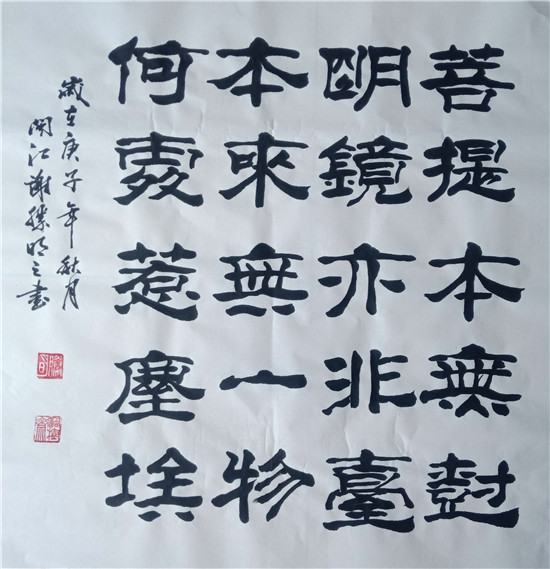 菩提本無尌
明鏡亦非臺
本來無一物
何處惹塵埃
歲在庚子年秋月
開江謝勝明之書